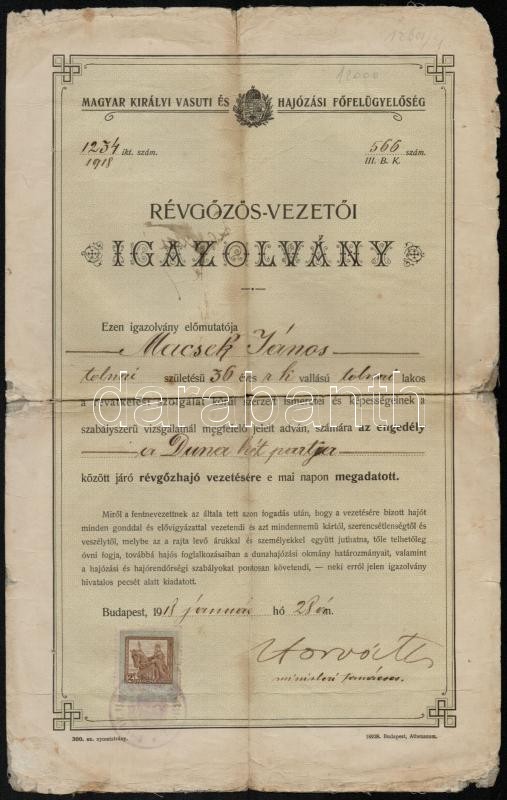 12601/4
12000
MAGYAR KIRÁLYI VASUTI ÉS HAJÓZÁSI FŐFELÜGYELŐSÉG
1234 ikt. szám.
1918
566 szám.
III. B. K.
RÉVGŐZÖS-VEZETŐI
IGAZOLVÁNY
Ezen igazolvány előmutatója
Macsek János
tolnai születésü 36 éves r k vallásu tolnai lakos
a révátkelési szolgálat körül szerzett ismeretei és képességeinek a
szabályszerű vizsgálatnál megfelelő jeleit adván, számára az engedély
a Duna két partja
között járó révgőzhajó vezetésére e mai napon megadatott.
darabanth
.com
Miről a fentnevezettnek az általa tett szon fogadás után, hogy a vezetésére bizott hajót
minden gonddal és elővigyázattal vezetendi és azt mindennemü kártól, szerencsétlenségtől és
veszélytől, melybe az a rajta levő árukkal és személyekkel együtt juthatna, tőle telhetőleg
óvni fogja, továbbá hajós foglalkozásaiban a dunahajózási okmány határozmányait, valamint
a hajózási és hajórendőrségi szabályokat pontosan követendi, — neki erről jelen igazolvány
hivatalos pecsét alatt kiadatott.
Budapest, 1918 január hó 28án.
Horváth
ministeri tanácsos.
300. sz. nyomtatvány.
16938. Budapest, Athenaeum.